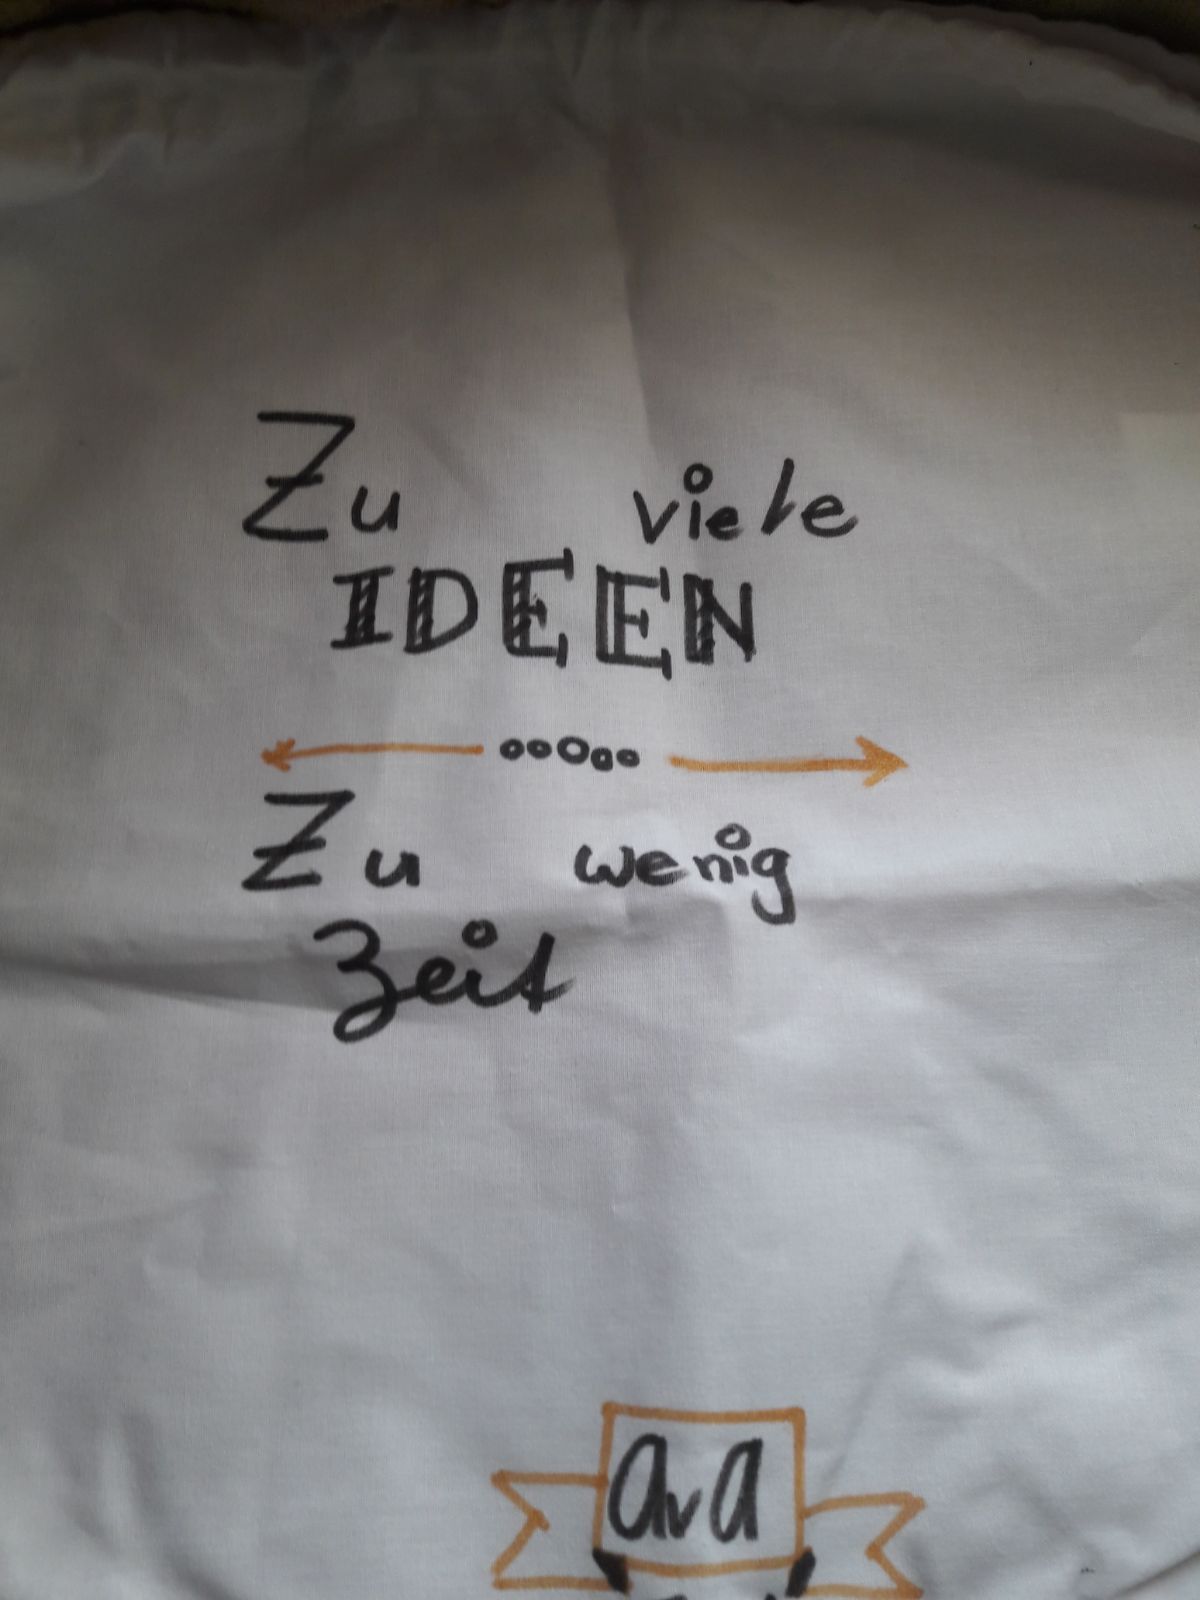 Zu viele
IDEEN
Zu wenig
Zeit
AvA